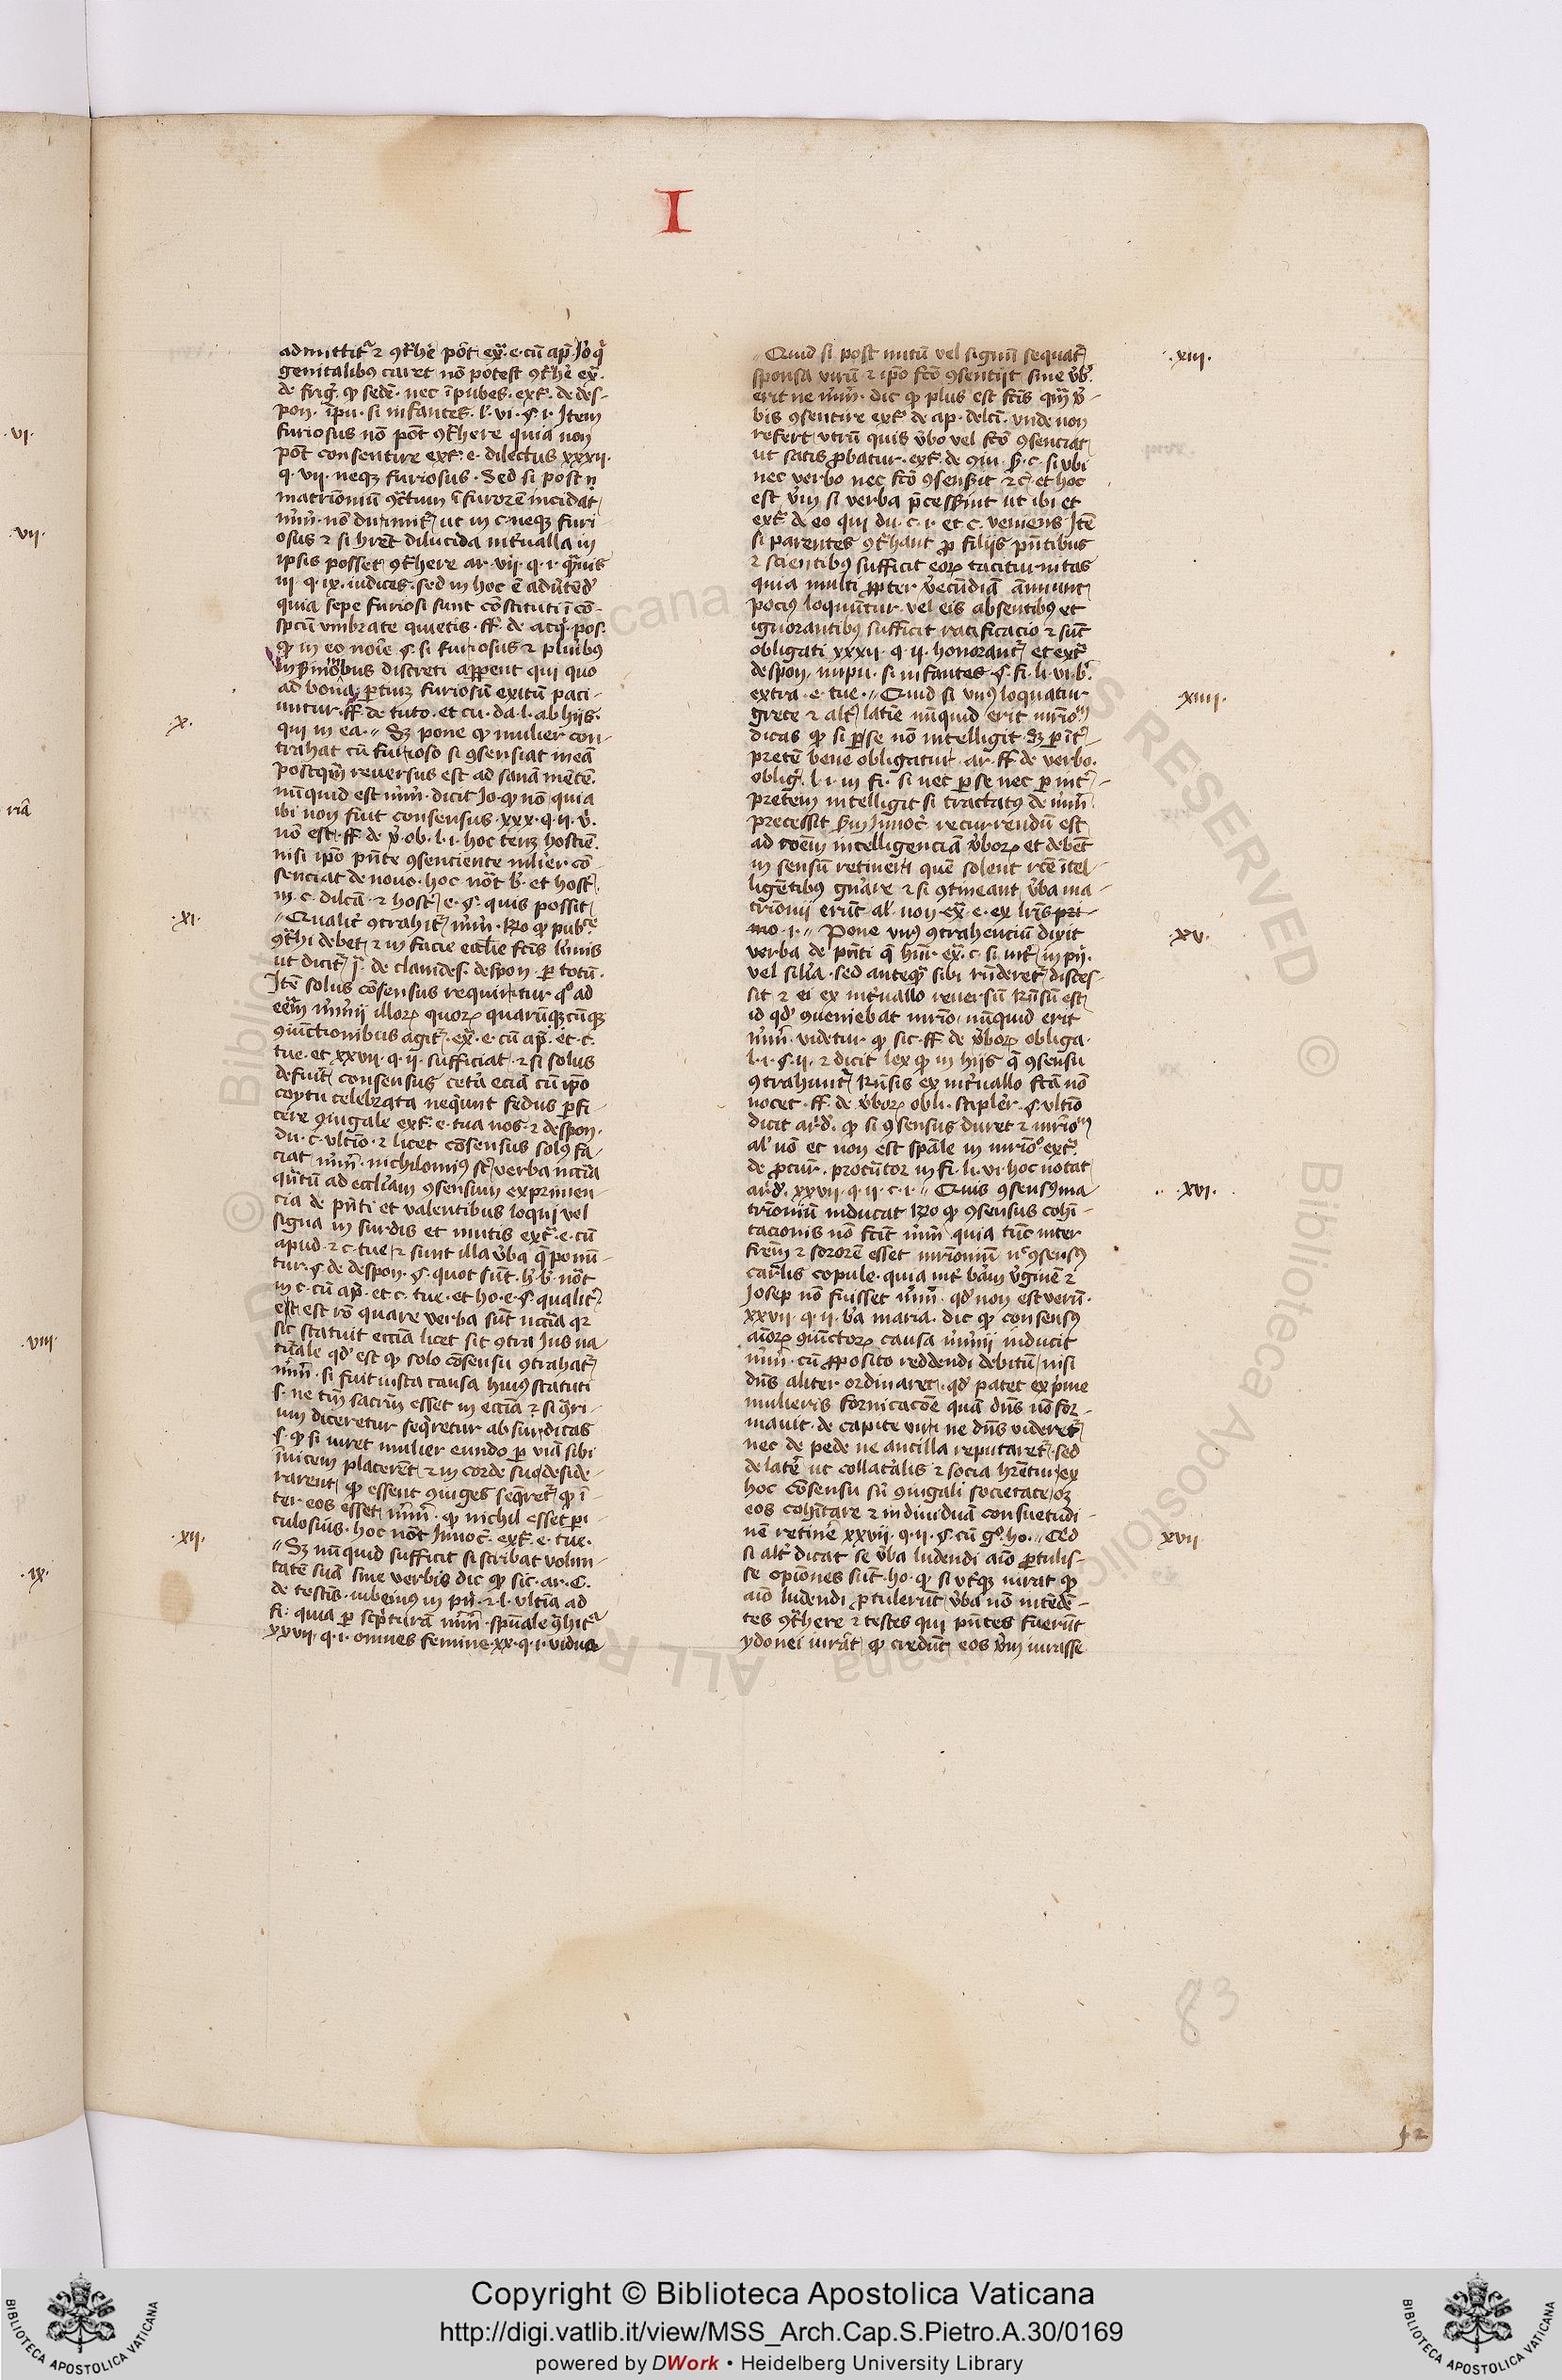 I
admittitᷣ ⁊ ꝯt̾hė pōt exͣ. e. cū ap̄. Jo qͥ
genitalibꝰ caret nō potest ꝯt̾hė exͣ.
de frigͥ. ꝙ sedē. nec īpubes. extͣ. de des-
pon. īpu. si infantes. l. vi. §. i. Item
furiosus nō pōt ꝯt̾here quia non
pōt consentire extͣ. e. dilectus xxxij.
q. vij. neqꝫ furiosus. Sed si post
matrīoniū ꝯctum ī furorē incidat
mͥm. nō dirimitᷣ ut in c. neqꝫ furi-
osus ⁊ si hrēt dilucida int̾ualla in
ipsis posset ꝯt̾here ar. vij. q. i. qͣmuis
iij q. ix. iudices. sed in hoc ē adu̾tēdͫ
quia sepe furiosi sunt cōstituti ī cō-
spctū vmbrate quietis. ff. de acqͥ. pos.
ꝙ in eo noīe §. si furiosus ⁊ pluribꝰ
discreti apparent qui quo
ad bona furiosū exitū paci-
untur. ff. de tuto. et cu. da. l. ab hijs.
qui in ea. // Sꝫ pone ꝙ mulier con-
trahat cū furioso si ꝯsensiat in eā
postqͣm reuersus est ad sanā mētē.
nūnquid est mͥm. dicit Jo. ꝙ nō quia
ibi non fuit consensus. xxx. q. ij. v̾.
nō est. ff. de v̾. ob. l. i. hoc tenꝫ hostiē.
nisi ipō pn̄te ꝯsenciente mlier. cō-
senciat de nouo. hoc nōt b̾. et host.
in c. dilcā. ⁊ host. e. §. quis possit.
// Qualit̾ ꝯtrahitᷣ mͥm. Ro ꝙ pub.
ꝯt̾hi debet ⁊ in facie ecclīe fctīs bannis
ut dicitᷣ j. de clandes. despon. ꝑ totū.
Itē solus cōsensus requiritur qͦ ad
eēm mͥmij illoꝝ quoꝝ quarūqꝫcūqꝫ
ꝯiūctionibus agitᷣ. exͣ. e. cū ap̄. et c.
tue. et xxvij. q. ij. sufficiat. ⁊ si solus
defuit̾ consensus ceta eciā cū ipo
coytu celebrata neqͥunt fedus ꝑfi-
cere ꝯiugale extͣ. e. tua nos. ⁊ despon.
du. c. vltīo. ⁊ licet cōsensus solꝰ fa-
ciat mͥm. nichilominꝰ sͭ verba nccīa
qͣntū ad eccliam ꝯsensum exprimen-
cia de pn̄ti et valentibus loqui vel
signa in surdis et mutis extͣ. e. cū
apud. ⁊ c. tue. ⁊ sunt illa v̾ba qͣ ponū-
tur. §. de despon. §. quot sūt. h̾. b̾. nōt
in c. cū ap̄. et c. tue. et ho. e. §. qualit̾.
est. est rō quare verba sūt nccīa qꝛ
sic statuit eccīa licet sit ꝯtra Jus na-
turale qdͫ est ꝙ solo cōsensu ꝯtrahatᷣ
mͥm. si fuit iusta causa huiꝰ statuti
s. ne tm̄ sacr̄m esset in eccīa ⁊ si qͥri-
um diceretur seqͥretur absurdicas
s. ꝙ si iuret mulier eundo ꝑ viā sibi
īuicem placerēt ⁊ in corde suo deside-
rarent ꝙ essent ꝯiuges seqͥretᷣ ꝙ ī-
ter eos esset mͥm. ꝙ nichil esset peri-
culosius. hoc nōt Innoc̄. extͣ. e. tue.
// Sꝫ nūnquid sufficit si scribat volun-
tatē suā sine verbis dic ꝙ sic. ar. C.
de testīs. iubemꝰ in pn̄. ⁊ l. vltīa ad
fi. quia ꝑ scͥpturā mͥm. spūale ꝯt̾hitᷣ
xxvij. q. i. omnes femine. xx. q. i. vidua
// Quid si post nutū vel signū sequatᷣ
sponsa virū ⁊ ipō fctō ꝯsentijt sine v̾b̾.
erit ne mͥm. dic ꝙ plus est fctīs qͣm v̾-
bis ꝯsentire extͣ. de ap. delcī. vnde non
refert vtrū quis v̾bo vel fctō ꝯsenciat
ut satis ꝓbatur. extͣ. de ꝯiu. c. si vbi
nec verbo nec fctō ꝯsensit ⁊ c̄. et hoc
est v̾m si verba p̄cesserint ut ibi et
extͣ. d̾ eo qui du. c. i. et c. veniens. Itē
si parentes ꝯt̾hant ꝓ filijs pn̄tibus
⁊ scientibus sufficit eoꝝ taciturnitas
quia multi ꝓpter v̾ecūdiā annuunt
pociꝰ loquūtur. vel eis absentibꝰ et
ignorantibꝰ sufficit ratificacio ⁊ sūt
obligati xxxij. q. ij. honorantᷣ et extͣ.
despon. inpu. si infantes §. fi. li. vi. b̾.
extra. e. tue. // Quid si vnꝰ loquatur
grece ⁊ alt̾ latīe nūquid erit mr̄ioͫ
dicas ꝙ si ꝑ se nō intelligit. sꝫ ꝑ īt̾-
pretē bene obligatur. ar. ff. de verbo.
oblig̾. l. i. in fi. si nec ꝑ se nec ꝑ int̾-
pretem intelligit si tractatꝰ de mͥm
precessit Innoc̄. recurrendū est
ad coēm intelligenciā v̾boꝝ et debēt
in sensū retineri quē solent rctē ītel-
ligētibꝰ gn̄are ⁊ si ꝯtineant v̾ba ma-
trīonij erūt al̾. non exͣ. e. ex lrīs pri-
mo. i. // Pone vnꝰ ꝯtrahenciū dixit
verba de pn̄ti exͣ. c. si int̾ in pn̄.
vel silīa. sed anteqͣ sibi rn̄deretᷣ disces-
sit ⁊ ei ex int̾uallo reuersū Rn̄sū est
id qdͫ ꝯueniebat mr̄io. nūnquid erit
mͥm. videtur. ꝙ sic. ff. de v̾boꝝ obliga.
l. i. §. ij. ⁊ dicit lex ꝙ in hijs qͣ ꝯsensu
ꝯtrahuntᷣ Rn̄sis ex int̾uallo fctā nō
nocet. ff. de v̾boꝝ obli. stipler. §. vltīo
dicit ar̾d̾. ꝙ si ꝯsensus duret ⁊ mr̄ioͫ
al̾ nō et non est spāle in mr̄io extͣ.
de ꝓcur. procūtor in fi. li. vi. hoc notat
ar̾d̾. xxvij. q. ij. c. i. // Quis ꝯsensꝰ ma-
trīoniū inducat Ro ꝙ ꝯsensus cohī-
tacionis nō fcīt mͥm quia tūc inter
frēm ⁊ sororē esset mr̄ionium nͨ ꝯsensꝰ
carnlis copule. quia int̾ b̄am v̾ginē ⁊
Josep nō fuisset mͥm. qdͫ non est verū.
xxvij. q. ij. b̄a maria. dic ꝙ consensꝰ
aīoꝝ ꝯiūctoꝝ causa mͥmij inducit
mͥm. cū ꝓposito reddendi debitū nisi
dn̄s aliter ordinaret. qdͫ patet ex pͥme
mulieris fornicacōe quā dn̄s nō for-
mauit. de capite viri ne dn̄s videretᷣ
nec de pede ne ancilla reputaretᷣ. sed
de latē ut collat̾alis ⁊ socia hr̄etur ex
hoc cōsensu sū ꝯiugali societate oꝫ
eos cohītare ⁊ indiuiduā consuetudi-
nē retinē xxvij. q. ij. §. cū gͦ. ho. // Qd̾
si alt̾ dicat se v̾ba ludendi aīo ꝓtulis-
se opīones sūt. ho. ꝙ si vt̾qꝫ iurat ꝙ
aīo ludendi ꝓtulerūt v̾ba nō intēdē-
tes ꝯt̾here ⁊ testes qui pn̄tes fuerūt
ydonei iurāt ꝙ credūt eos v̾m iurasse
.vi.
.vii.
.viii.
.ix.
.x.
.xi.
.xii.
.xiii.
.xiiii.
.xv.
.xvi.
xvii
83
Copyright © Biblioteca Apostolica Vaticana
http://digi.vatlib.it/view/MSS_Arch.Cap.S.Pietro.A.30/0169
powered by DWork • Heidelberg University Library
BIBLIOTECA APOSTOLICA VATICANA
BIBLIOTECA APOSTOLICA VATICANA